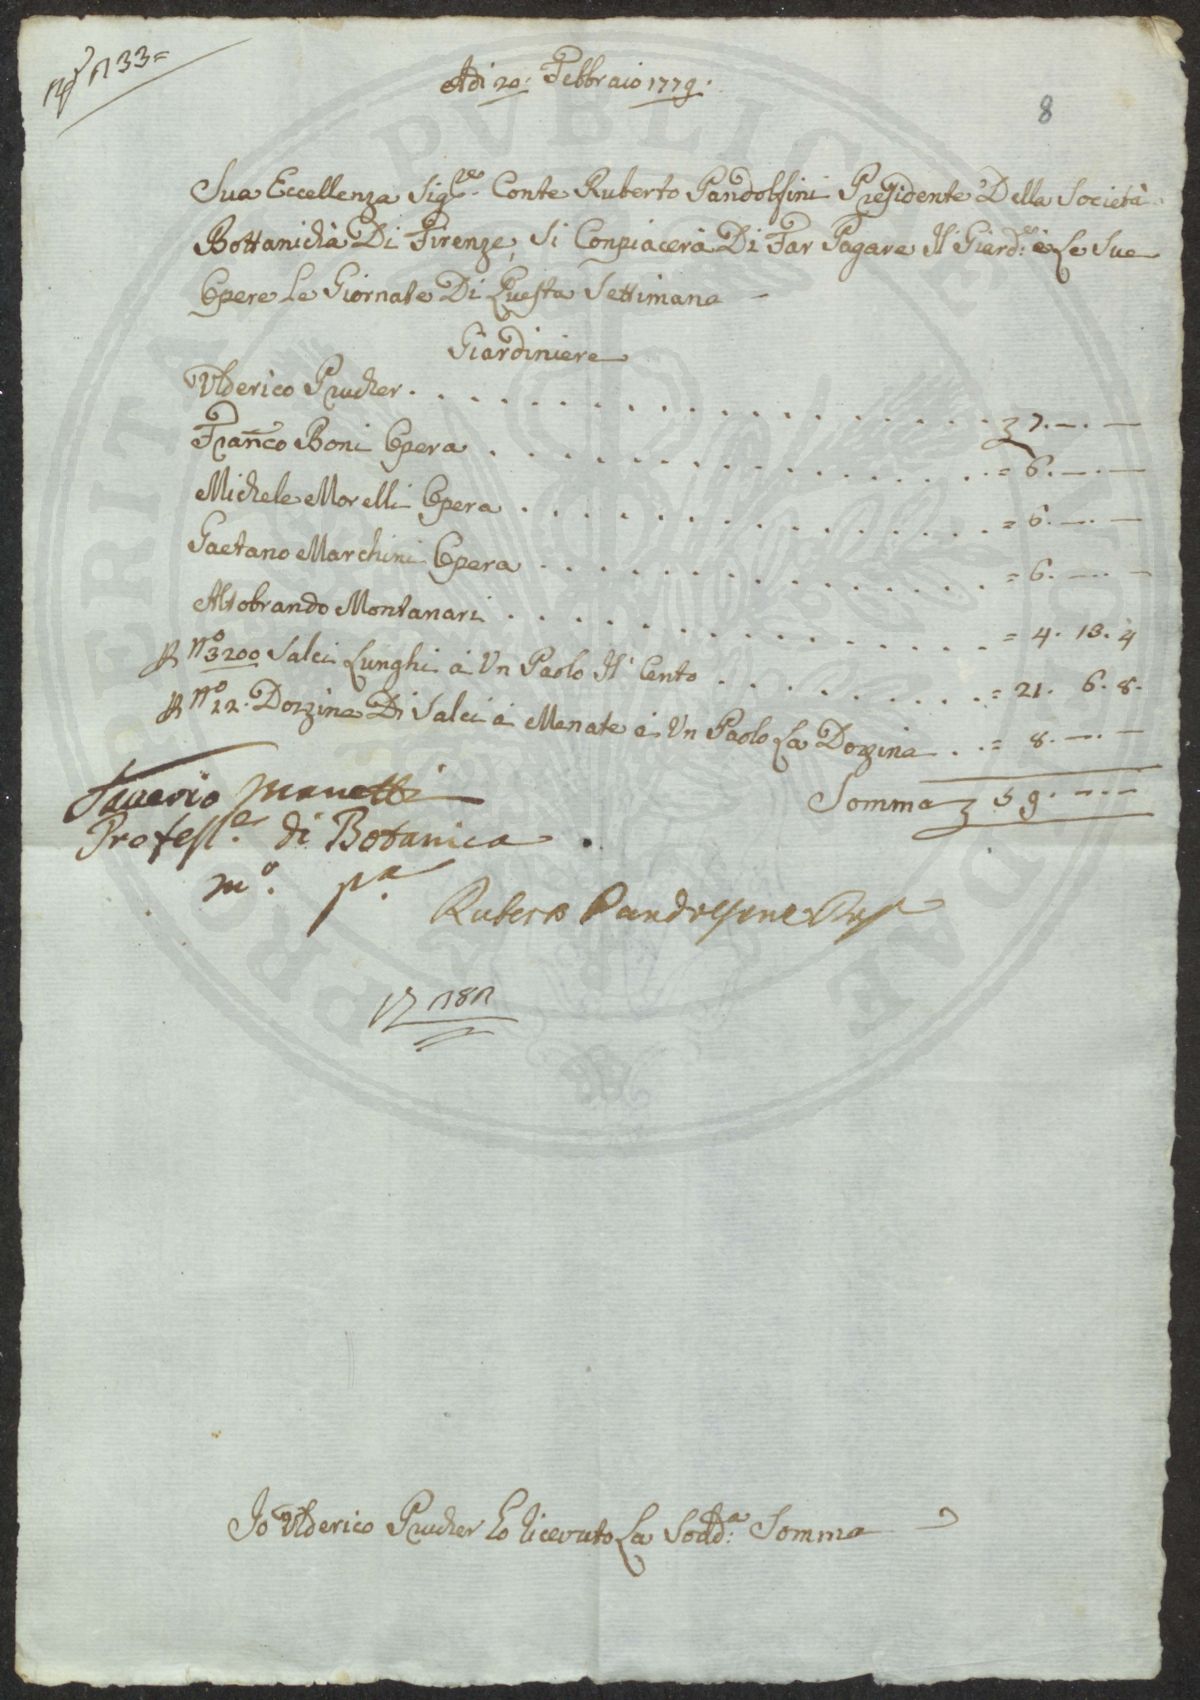 n 33=
Adi 20: Febbraio 1779.
8
Sua Eccellenza Sig.re Conte Ruberto Pandolfini Presidente Della Società
Bottanicha Di Firenze, Si Conpiacerà Di Far Pagare Il Giard.e e Le Sue
Opere Le Giornate Di Questa Settimana —
Giardiniere
Vlderico Prucher . . . . . . . . . . . . . . . . . 7. —. —
Franco Boni Opera . . . . . . . . . . . . . . . = 6. —. —
Michele Morelli Opera . . . . . . . . . . . . . . = 6. —. —
Gaetano Marchini Opera . . . . . . . . . . . . . = 6. —. —
Altobrando Montanari . . . . . . . . . . . . . . = 4. 13. 4
P. N.o 3200 Salci Lunghi à Un Paolo Il Cento . . . . . . . . = 21. 6. 8.
P. N.o 12. Dozzine Di Salci à Menate à Un Paolo La Dozzina . . = 8. —. —
Somma 59. —. —
Saverio Manetti
Profess.e di Botanica
m.o p.a
Ruberto Pandolfini
Io Vlderico Prucher ho Ricevuto La Sodd.a Somma
PROSPERITÀ PVBLICAE